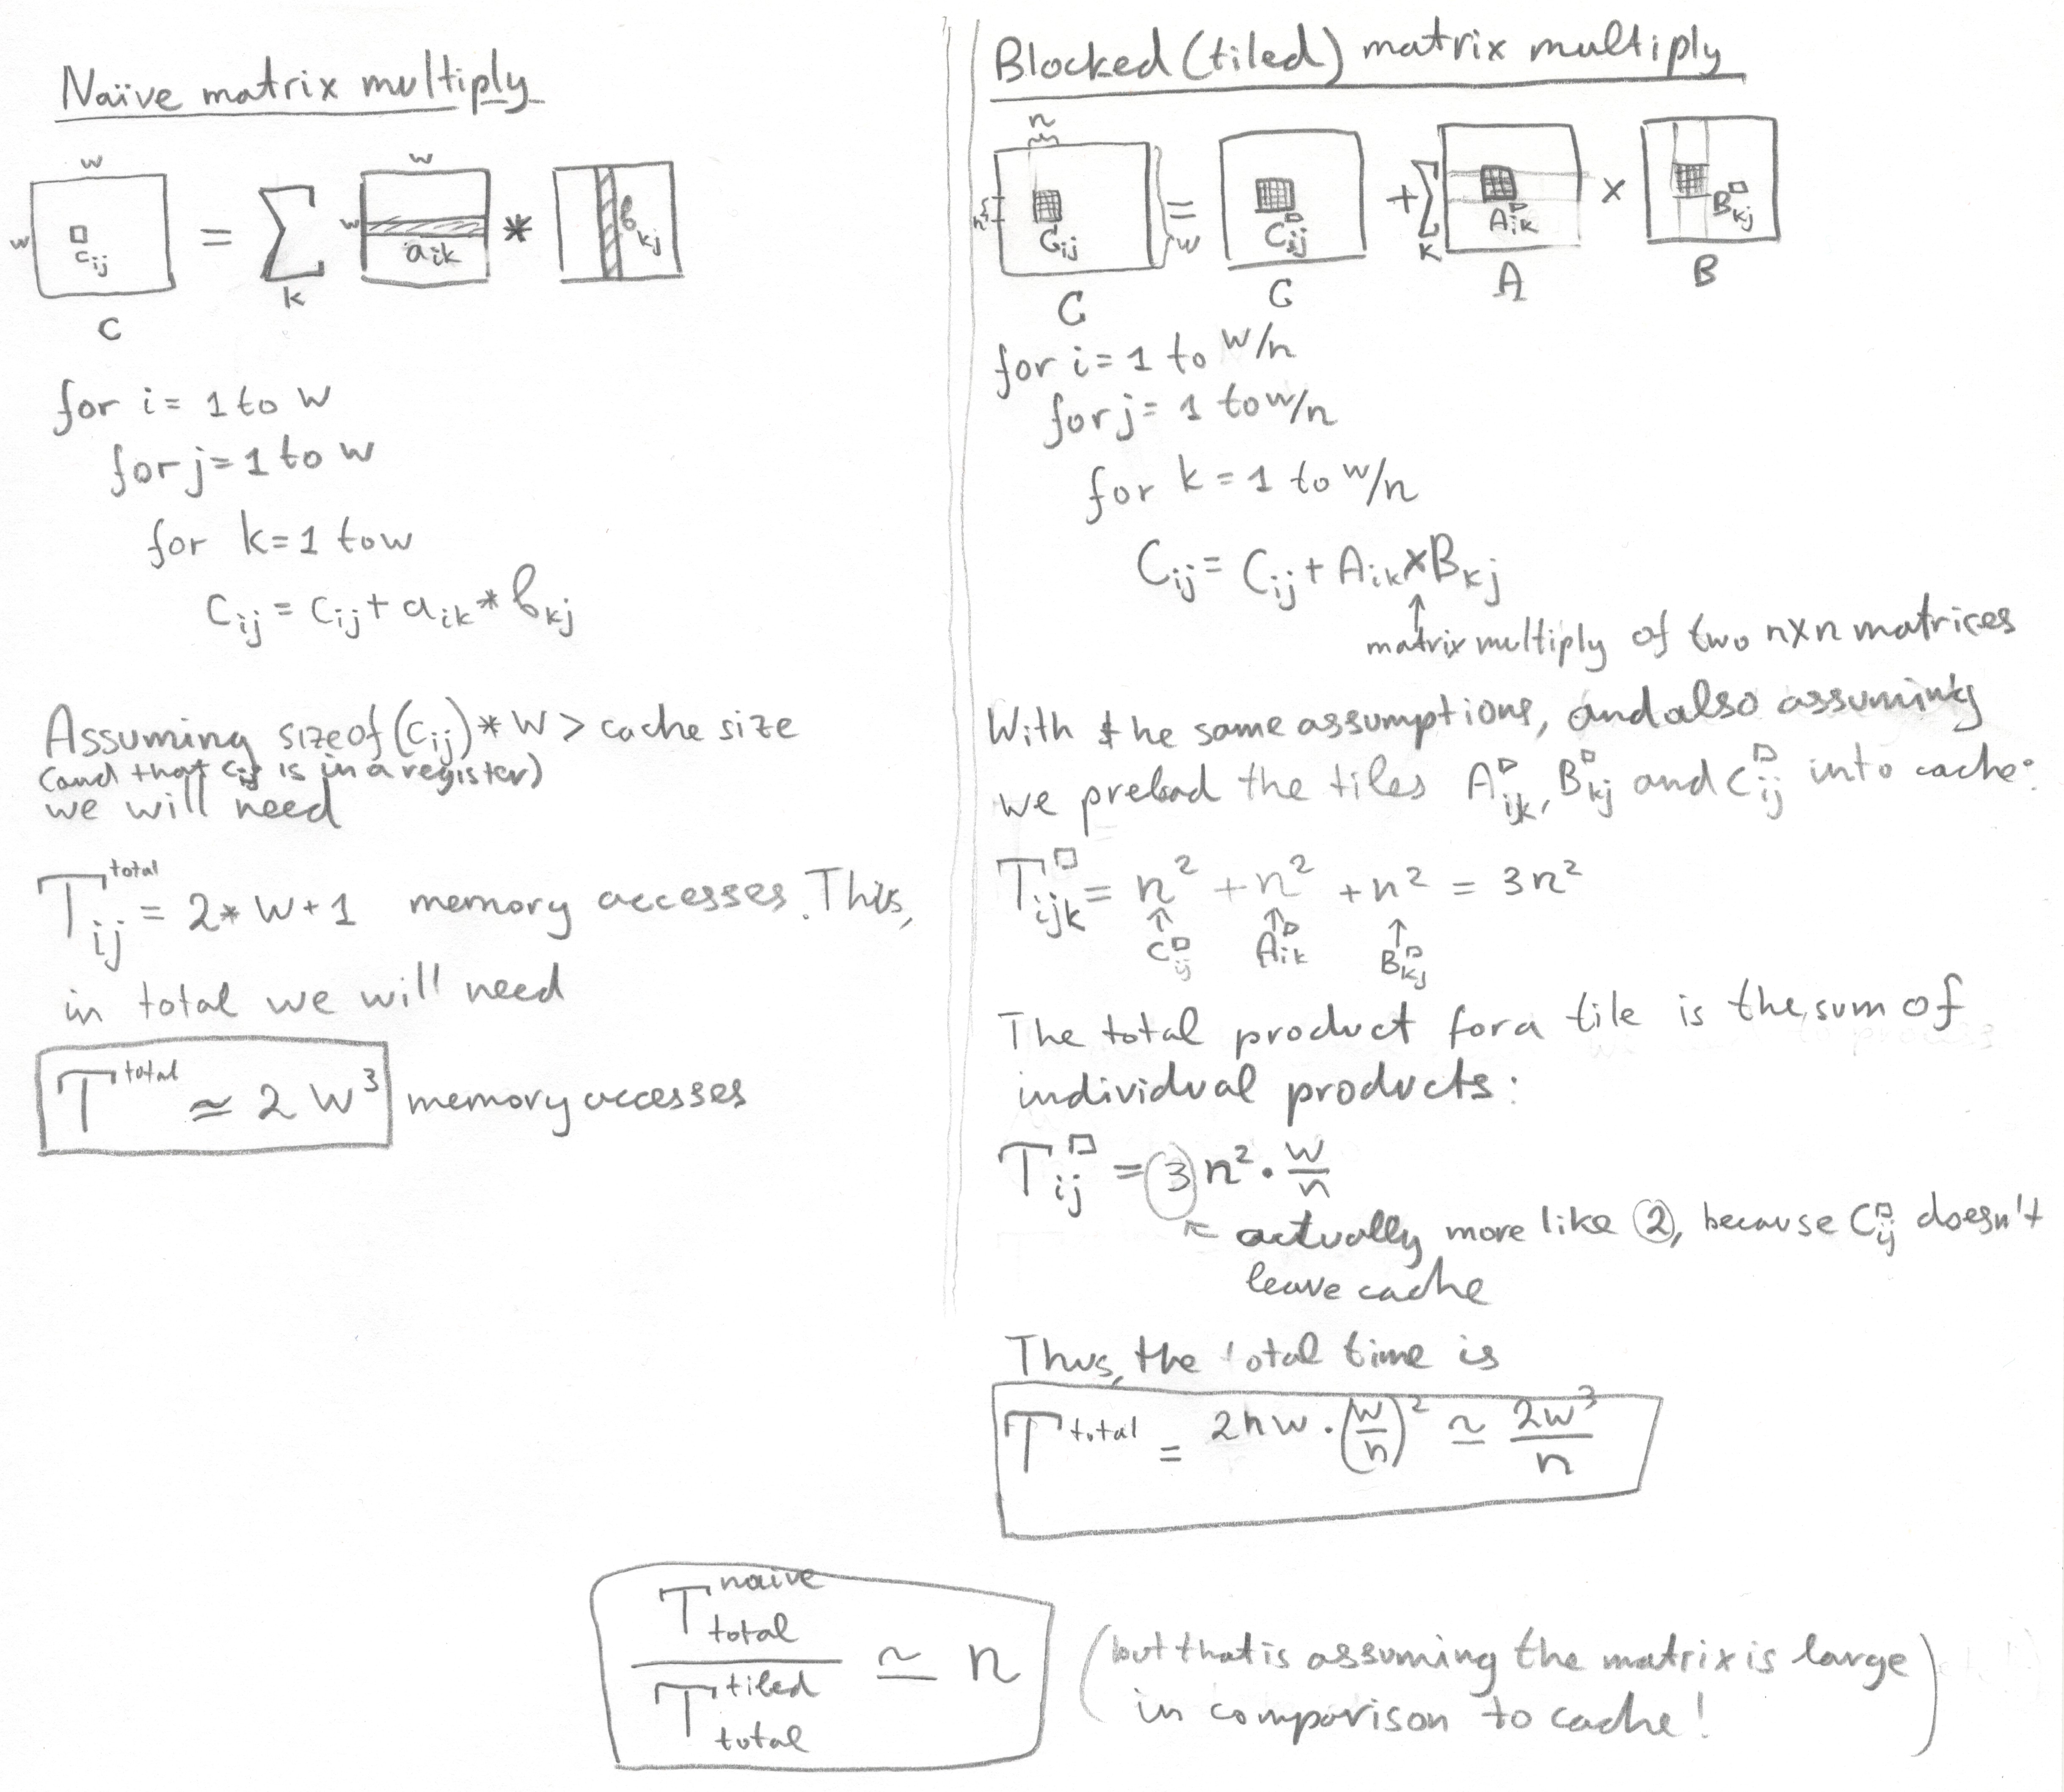 Naïve matrix multiply
w
w
w
w
c_ij
=
∑
k
a_ik
*
b_kj
C
for i = 1 to w
for j = 1 to w
for k = 1 to w
c_ij = c_ij + a_ik * b_kj
Assuming sizeof(c_ij) * w > cache size
(and that c_ij is in a register)
we will need
T_ij^total = 2 * w + 1 memory accesses. This,
in total we will need
T^total ≃ 2 w³ memory accesses
Blocked (tiled) matrix multiply
n
n
w
C_ij
=
C_ij^□
+ ∑
k
A_ik^□
×
B_kj^□
C
C
A
B
for i = 1 to w/n
for j = 1 to w/n
for k = 1 to w/n
C_ij = C_ij + A_ik × B_kj
↑
matrix multiply of two n×n matrices
With the same assumptions, and also assuming
we preload the tiles A_ik^□, B_kj^□ and C_ij^□ into cache:
T_ijk^□ = n² + n² + n² = 3n²
↑ ↑ ↑
C_ij^□ A_ik^□ B_kj^□
The total product for a tile is the sum of
individual products:
T_ij^□ = 3 n² · w/n
↖ actually more like 2, because C_ij^□ doesn't
leave cache
Thus, the total time is
T^total = 2nw · (w/n)² ≃ 2w³/n
T_total^naive / T_total^tiled ≃ n
(but that is assuming the matrix is large
in comparison to cache!)